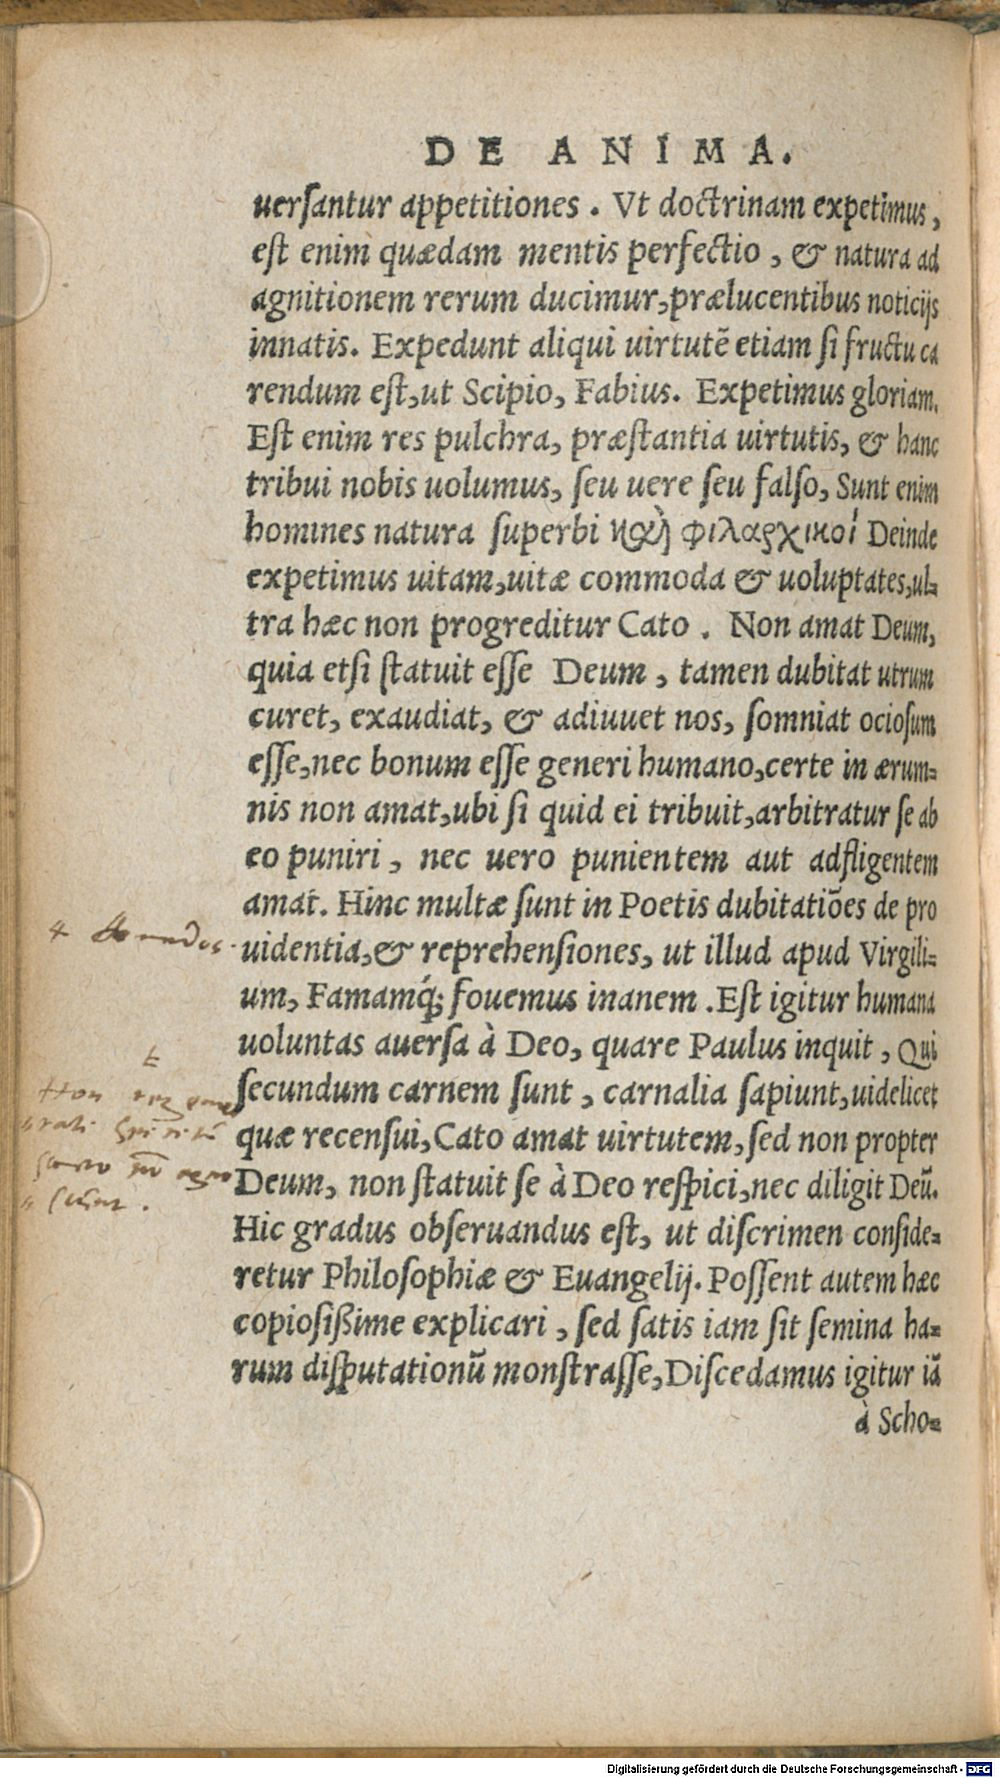 DE ANIMA.
uersantur appetitiones . Vt doctrinam expetimus,
est enim quædam mentis perfectio , & natura ad
agnitionem rerum ducimur, prælucentibus noticijs
innatis. Expedunt aliqui uirtutẽ etiam si fructu ca
rendum est, ut Scipio, Fabius. Expetimus gloriam.
Est enim res pulchra, præstantia uirtutis, & hanc
tribui nobis uolumus, seu uere seu falso, Sunt enim
homines natura superbi καὶ φιλαρχικοί Deinde
expetimus uitam, uitæ commoda & uoluptates, ul=
tra hæc non progreditur Cato . Non amat Deum,
quia etsi statuit esse Deum , tamen dubitat utrum
curet, exaudiat, & adiuuet nos, somniat ociosum
esse, nec bonum esse generi humano, certe in ærum=
nis non amat, ubi si quid ei tribuit, arbitratur se ab
eo puniri , nec uero punientem aut adfligentem
amat. Hinc multæ sunt in Poetis dubitatiões de pro
uidentia, & reprehensiones, ut illud apud Virgili=
um, Famamq́; fouemus inanem . Est igitur humana
uoluntas auersa à Deo, quare Paulus inquit , Qui
secundum carnem sunt , carnalia sapiunt, uidelicet
quæ recensui, Cato amat uirtutem, sed non propter
Deum, non statuit se à Deo respici, nec diligit Deũ.
Hic gradus obseruandus est, ut discrimen conside=
retur Philosophiæ & Euangelij. Possent autem hæc
copiosißime explicari , sed satis iam sit semina ha=
rum disputationũ monstrasse, Discedamus igitur iã
à Scho=
Digitalisierung gefördert durch die Deutsche Forschungsgemeinschaft - DFG